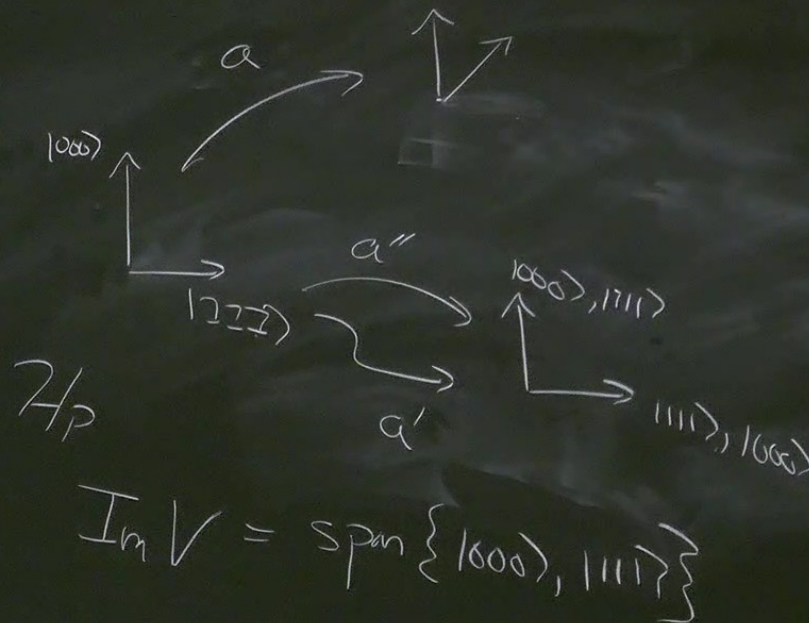 a
|000⟩
a''
|000⟩, |111⟩
|111⟩
a'
|111⟩, |000⟩
H_p
Im V = span{|000⟩, |111⟩}